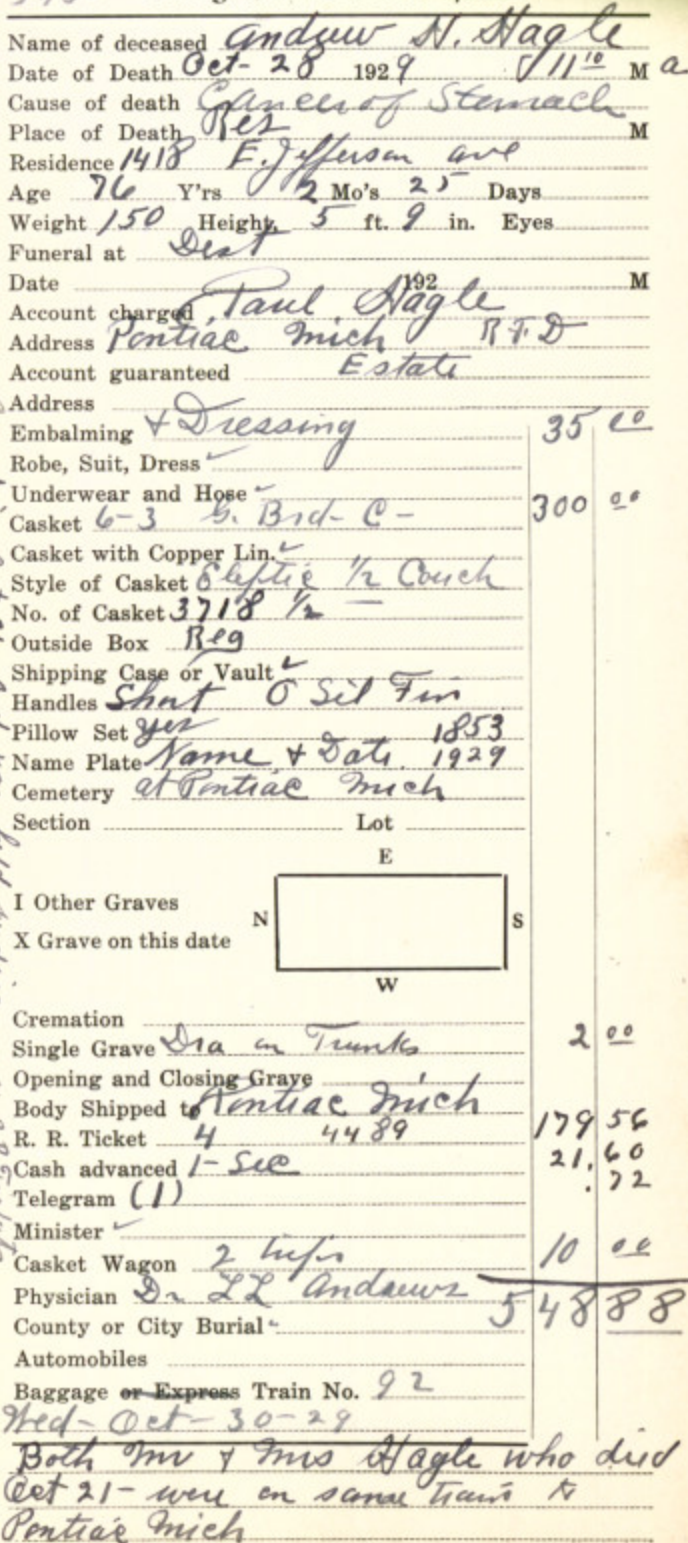 Name of deceased Andrew H. Hagle
Date of Death Oct- 28 1929 11 10 M a
Cause of death Cancer of Stomach
Place of Death Res M
Residence 1418 E. Jefferson ave
Age 76 Y'rs 2 Mo's 25 Days
Weight 150 Height, 5 ft. 9 in. Eyes
Funeral at Dest
Date 192 M
Account charged Paul Hagle
Address Pontiac Mich R.F.D
Account guaranteed Estate
Address
Embalming + Dressing 35 00
Robe, Suit, Dress
Underwear and Hose
Casket 6-3 G. Brd- C- 300 00
Casket with Copper Lin.
Style of Casket Eleptic 1/2 Couch
No. of Casket 3718 1/2 -
Outside Box Reg
Shipping Case or Vault
Handles Short O Sil Fin
Pillow Set yes 1853
Name Plate Name + Date. 1929
Cemetery at Pontiac Mich
Section Lot
E
I Other Graves
N S
X Grave on this date
W
Cremation
Single Grave on Trunks 2 00
Opening and Closing Grave
Body Shipped to Pontiac Mich
R. R. Ticket 4 4489 179 56
Cash advanced 1- Sec 21.60
Telegram (1) .72
Minister
Casket Wagon 2 trips 10 00
Physician Dr LL Andrews 548 88
County or City Burial
Automobiles
Baggage or Express Train No. 92
Wed- Oct- 30-29
Both Mr + Mrs Hagle who died
Oct 21- were on same train to
Pontiac Mich